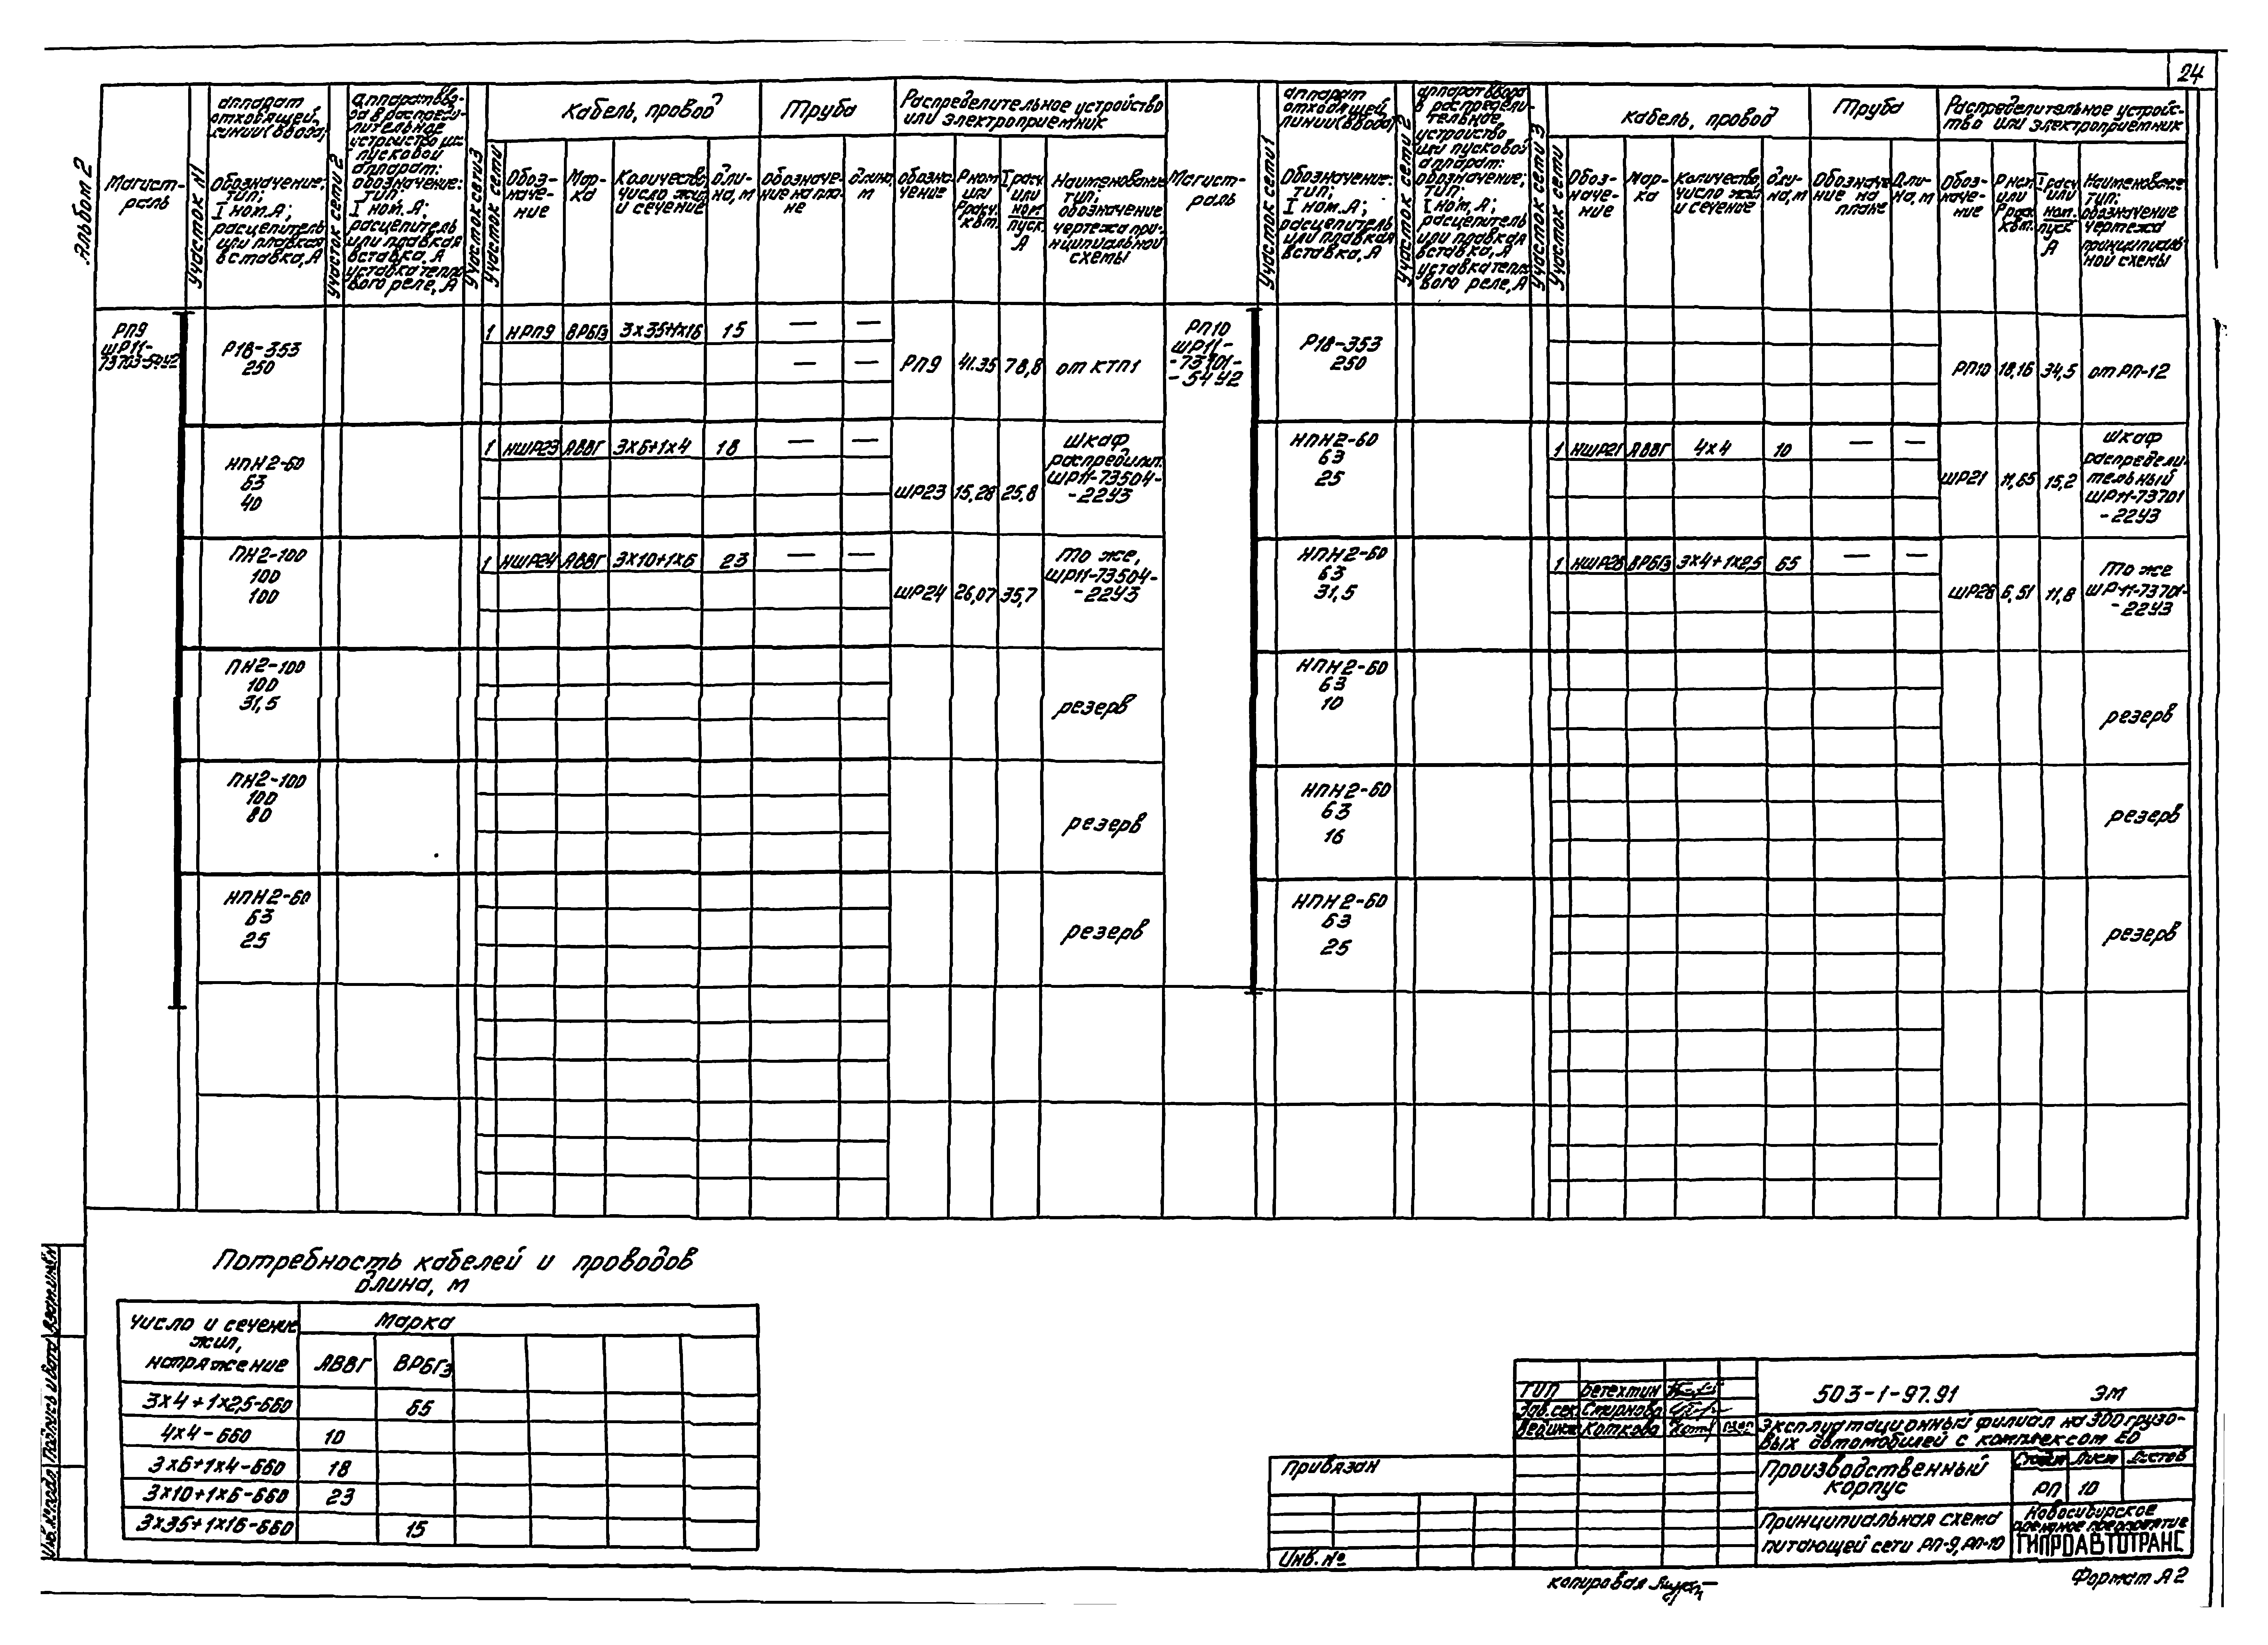 24
Альбом 2
Магист-
раль
Участок №1
аппарат
отходящей
линии (ввода)
Обозначение;
тип;
I ном. А;
расцепитель
или плавкая
вставка, А
Участок сети 2
аппарат вво-
да в распреде-
лительное
устройство или
пусковой
аппарат:
обозначение:
тип;
I ном. А;
расцепитель
или плавкая
вставка, А
уставка тепло-
вого реле, А
Участок сети 3
Участок сети
Кабель, провод
Обоз-
наче-
ние
Мар-
ка
Количество,
число жил
и сечение
Дли-
на, м
Труба
Обозначе-
ние на пла-
не
Длина,
м
Распределительное устройство
или электроприемник
Обозна-
чение
Рном
или
Ррасч.
квт.
Iрасч
или
ном.
пуск.
А
Наименование
тип;
обозначение
чертежа прин-
ципиальной
схемы
Магист-
раль
Участок сети 1
аппарат
отходящей
линии (ввода)
Обозначение:
тип;
I ном. А;
расцепитель
или плавкая
вставка, А
Участок сети 2
аппарат ввода
в распредели-
тельное
устройство
или пусковой
аппарат:
обозначение;
тип;
I ном, А;
расцепитель
или плавкая
вставка, А
уставка тепло-
вого реле, А
Участок сети 3
Участок сети
Кабель, провод
Обоз-
наче-
ние
Мар-
ка
Количество
число жил
и сечение
Дли-
на, м
Труба
Обозначе-
ние на
плане
Дли-
на, м
Распределительное устройс-
тво или электроприемник
Обоз-
наче-
ние
Рном.
или
Ррасч
квт.
Iрасч
или
ном.
пуск
А
Наименование
тип:
обозначение
чертежа
принципиаль-
ной схемы
РП9
ШР11-
73703-54У2
Р18-353
250
1 НРП9 ВРБГз 3х35+1х16 15 — —
— —
РП9 41.35 78,8 от КТП1
НПН2-60
63
40
1 НШР23 АВВГ 3х6+1х4 18 — —
ШР23 15,28 25,8
Шкаф
распределит.
ШР11-73504-
-22У3
ПН2-100
100
100
1 НШР24 АВВГ 3х10+1х6 23 — —
ШР24 26,07 35,7
То же,
ШР11-73504-
-22У3
ПН2-100
100
31,5
резерв
ПН2-100
100
80
резерв
НПН2-60
63
25
резерв
РП10
ШР11-
-73701-
-54У2
Р18-353
250
РП10 18,16 34,5 от РП-12
НПН2-60
63
25
1 НШР21 АВВГ 4х4 10 — —
ШР21 11,65 15,2
Шкаф
распредели-
тельный
ШР11-73701
-22У3
НПН2-60
63
31,5
1 НШР26 ВРБГз 3х4+1х2,5 65 — —
ШР26 6,51 11,8
То же
ШР11-73701-
-22У3
НПН2-60
63
10
резерв
НПН2-60
63
16
резерв
НПН2-60
63
25
резерв
Потребность кабелей и проводов
длина, м
Число и сечение
жил,
напряжение
Марка
АВВГ ВРБГз
3х4+1х2,5-660 65
4х4-660 10
3х6+1х4-660 18
3х10+1х6-660 23
3х35+1х16-660 15
Взам.инв.№
Подпись и дата
Инв.№ подл.
Привязан
Инв. №
ГИП Бетехтин
Зав.сек Смирнова
Вед.инж Коткова
503-1-97.91 ЭМ
Эксплуатационный филиал на 300 грузо-
вых автомобилей с комплексом ЕО
Производственный
корпус
Стадия Лист Листов
РП 10
Принципиальная схема
питающей сети РП-9, РП-10
Новосибирское
предприятие
ГИПРОАВТОТРАНС
копировал
Формат А2